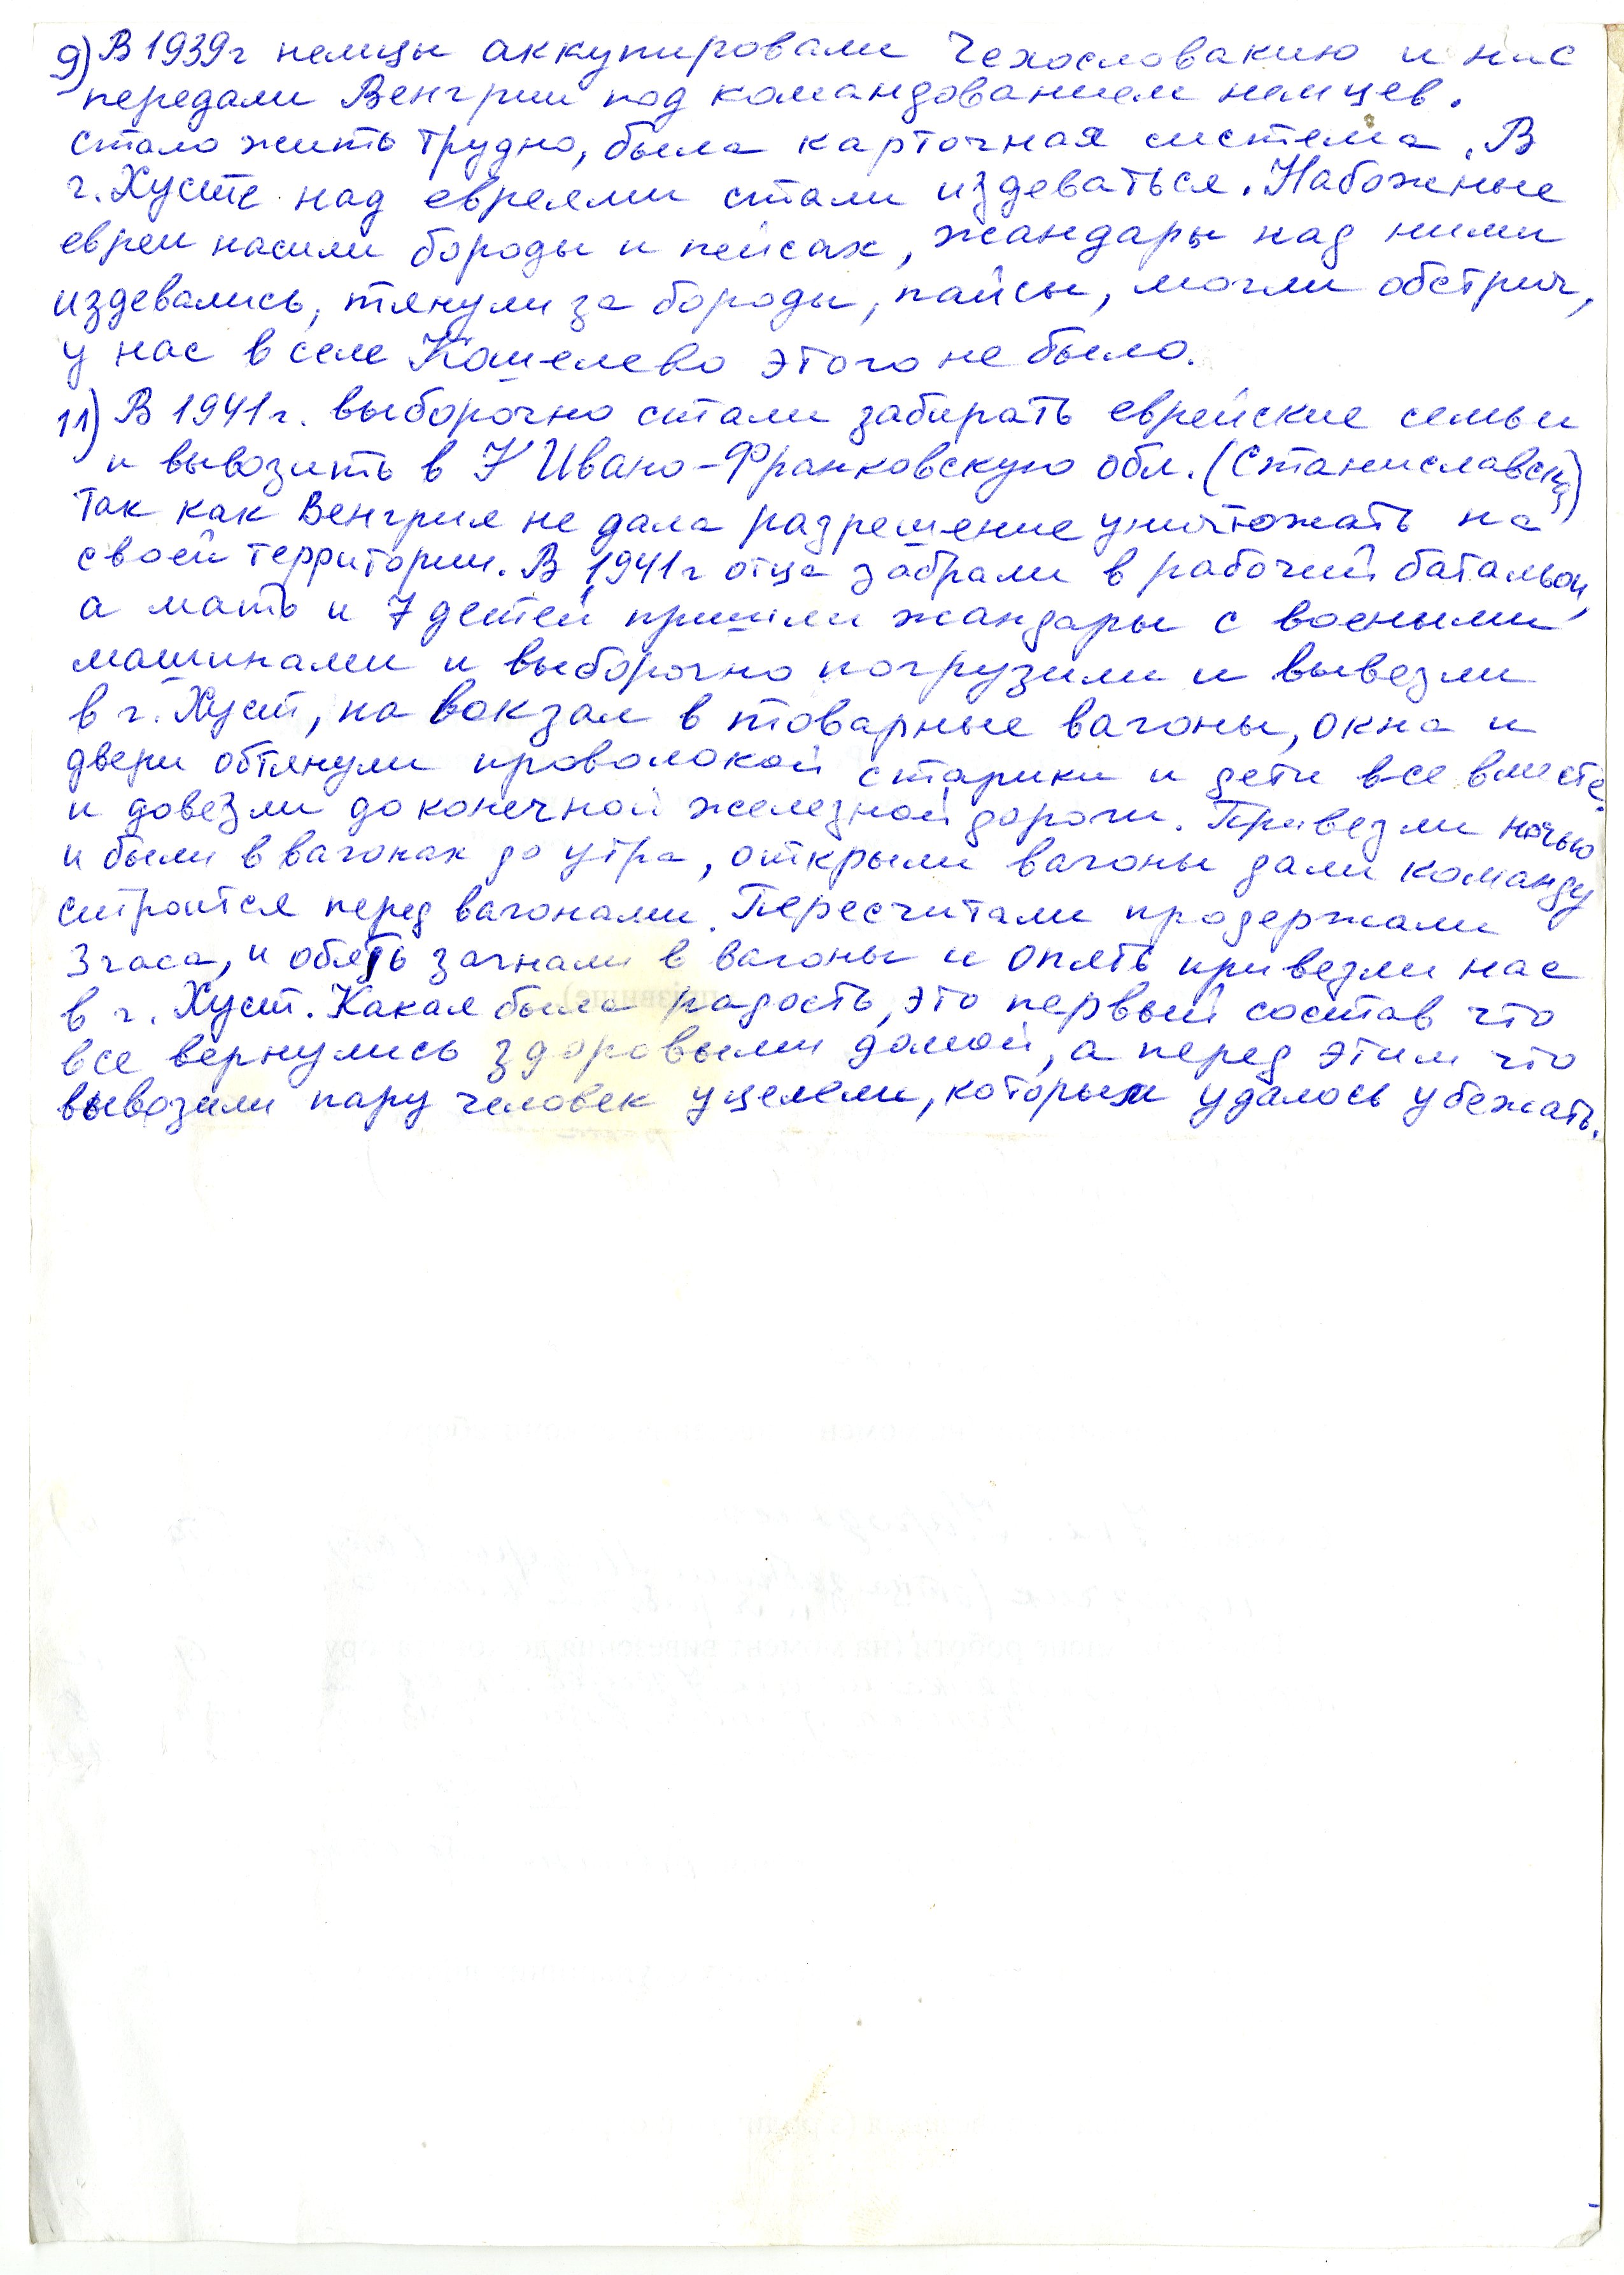 9) В 1939г немцы аккупировали Чехословакию и нас
передали Венгрии под командованием немцев.
Стало жить трудно, была карточная система. В
г. Хусте над евреями стали издеваться. Набожные
евреи насили бороды и пейсах, жандары над ними
издевались, тянули за бороды, пайсы, могли обстрич,
у нас в селе Кошелево этого не было.
11) В 1941г. выборочно стали забирать еврейские семьи
и вывозить в Ивано-Франковскую обл. (Станиславск)
так как Венгрия не дала разрешение уничтожать на
своей территории. В 1941г отца забрали в рабочий батальон,
а мать и 7 детей пришли жандары с воеными
машинами и выборочно погрузили и вывезли
в г. Хуст, на вокзал в товарные вагоны, окна и
двери обтянули проволокой старики и дети все вместе.
и довезли до конечной железной дороги. Привезли ночью
и были в вагонах до утра, открыли вагоны дали команду
строится перед вагонами. Пересчитали продержали
3 часа, и обять загнали в вагоны и опять привезли нас
в г. Хуст. Какая была радость, это первый состав что
все вернулись здоровыми домой, а перед этим что
вывозили пару человек уцелели, которым удалось убежать.